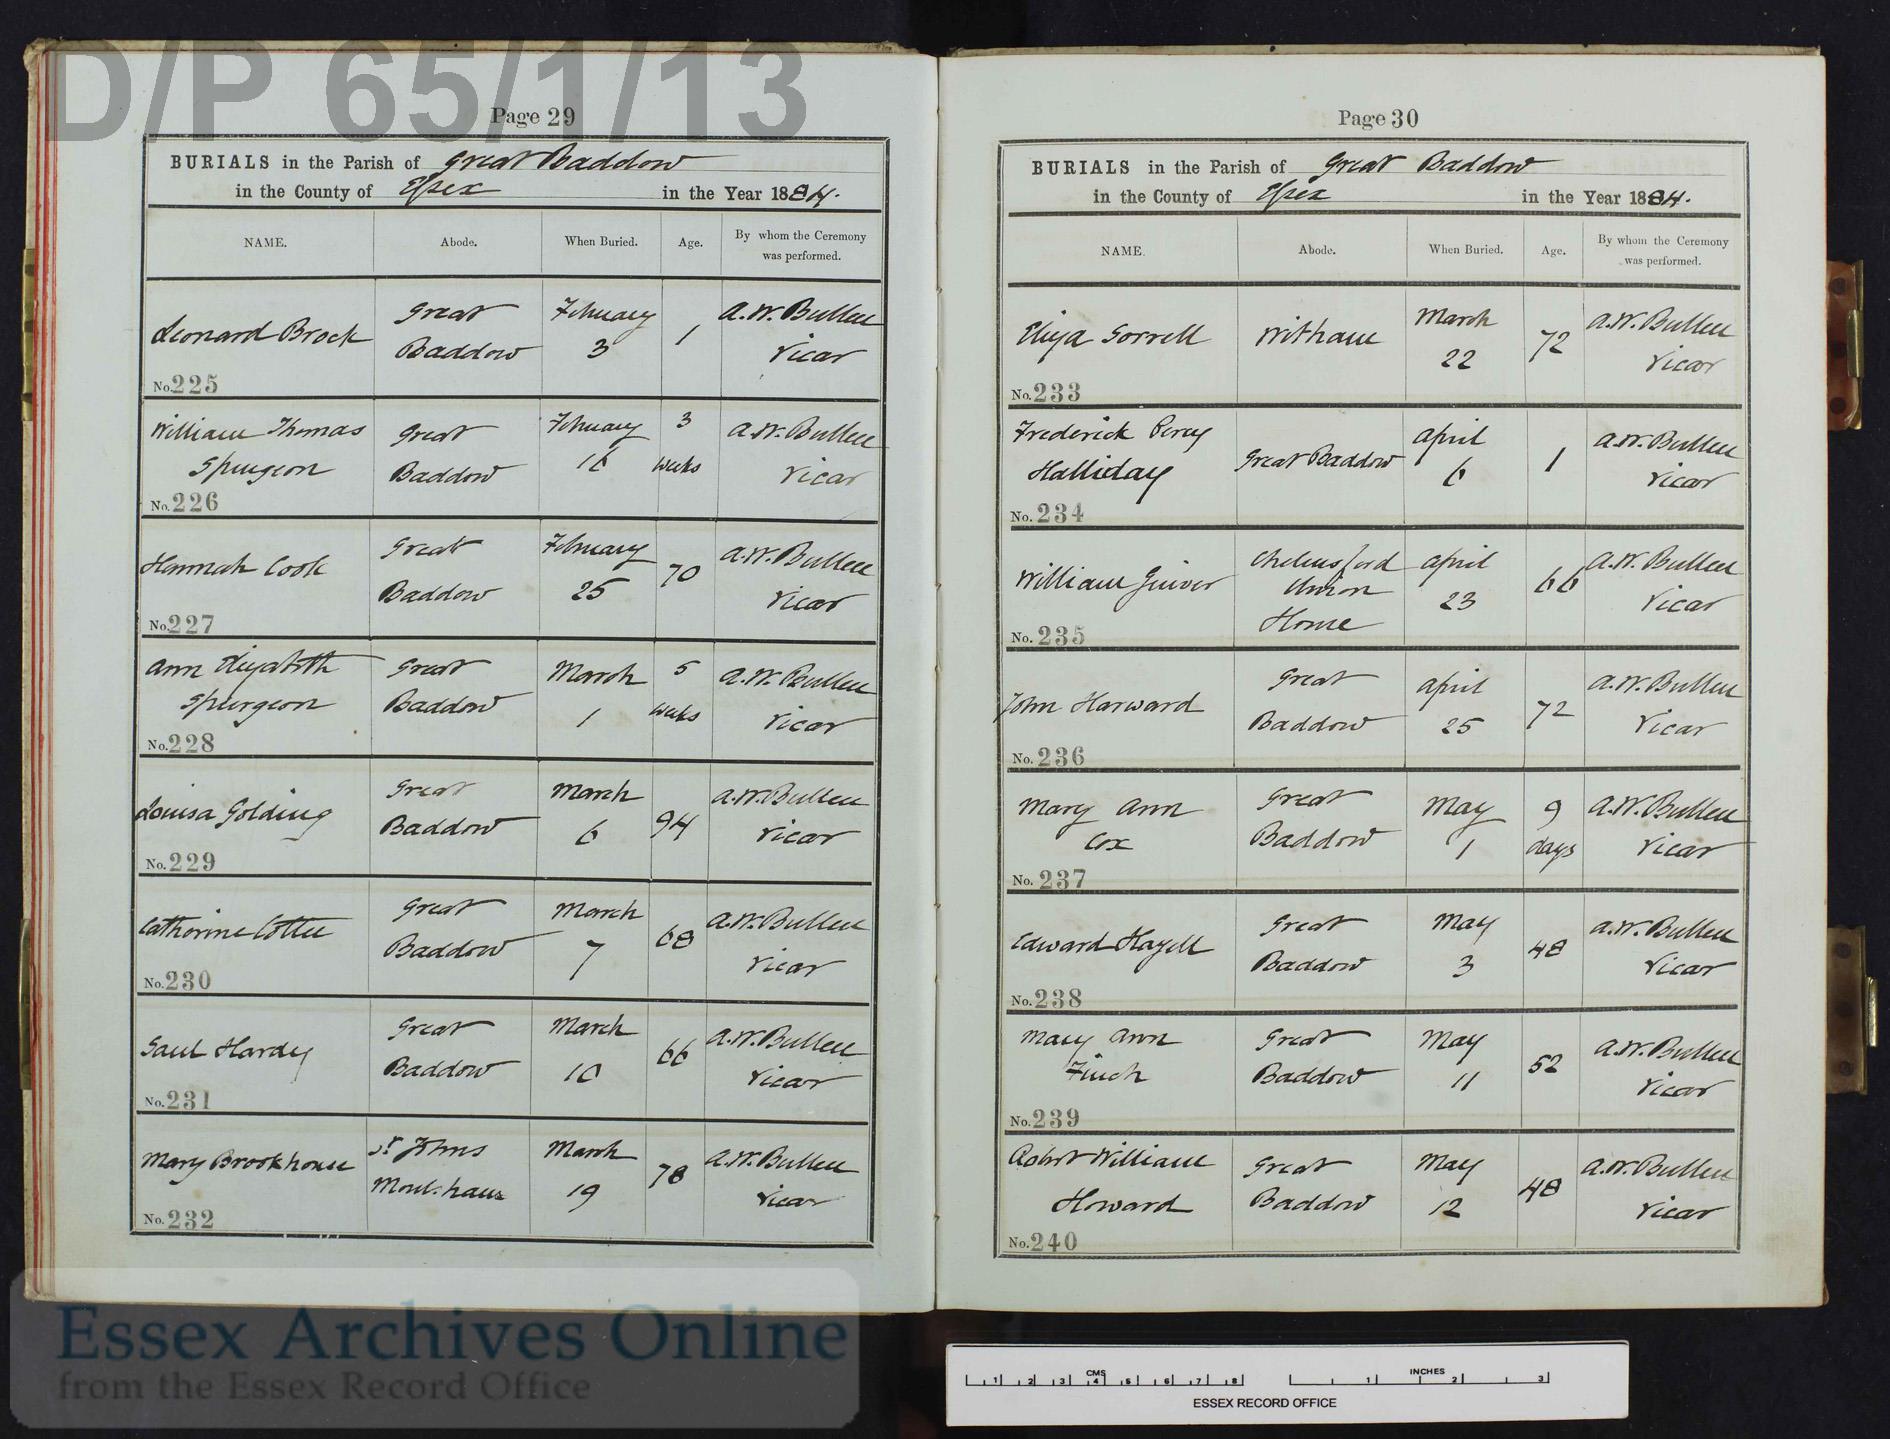 D/P 65/1/13
Page 29
BURIALS in the Parish of Great Baddow
in the County of Essex in the Year 1884.
NAME. Abode. When Buried. Age. By whom the Ceremony was performed.
Leonard Brock Great Baddow February 3 1 A.W. Bullen Vicar
No. 225
William Thomas Spurgeon Great Baddow February 16 3 weeks A.W. Bullen Vicar
No. 226
Hannah Cook Great Baddow February 25 70 A.W. Bullen Vicar
No. 227
Ann Elizabeth Spurgeon Great Baddow March 1 5 weeks A.W. Bullen Vicar
No. 228
Louisa Golding Great Baddow March 6 94 A.W. Bullen Vicar
No. 229
Catherine Cottee Great Baddow March 7 68 A.W. Bullen Vicar
No. 230
Saul Hardy Great Baddow March 10 66 A.W. Bullen Vicar
No. 231
Mary Brookhouse St Johns March 19 78 A.W. Bullen Vicar
No. 232
Page 30
BURIALS in the Parish of Great Baddow
in the County of Essex in the Year 1884.
NAME. Abode. When Buried. Age. By whom the Ceremony was performed.
Eliza Sorrell Witham March 22 72 A.W. Bullen Vicar
No. 233
Frederick Percy Halliday Great Baddow April 6 1 A.W. Bullen Vicar
No. 234
William Guiver Chelmsford Union House April 23 66 A.W. Bullen Vicar
No. 235
John Harward Great Baddow April 25 72 A.W. Bullen Vicar
No. 236
Mary Ann Cox Great Baddow May 1 9 days A.W. Bullen Vicar
No. 237
Edward Hazell Great Baddow May 3 48 A.W. Bullen Vicar
No. 238
Mary Ann Finch Great Baddow May 11 52 A.W. Bullen Vicar
No. 239
Robert William Howard Great Baddow May 12 48 A.W. Bullen Vicar
No. 240
Essex Archives Online
from the Essex Record Office
CMS
1 2 3 4 5 6 7 8
INCHES
1 2 3
ESSEX RECORD OFFICE